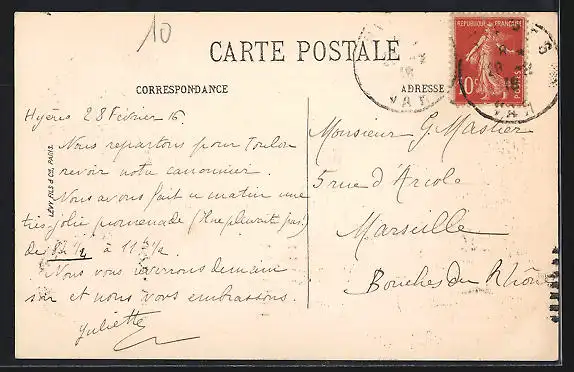 10
CARTE POSTALE
CORRESPONDANCE
ADRESSE
REPUBLIQUE FRANÇAISE
10c
POSTES
VAR
VAR
LÉVY FILS & CIE, PARIS
Hyères 28 Février 16.
Nous repartons pour Toulon
revoir notre canonnier.
Nous avons fait ce matin une
très jolie promenade (Il ne pleuvait pas)
de 8h 1/2 à 11h 1/2.
Nous vous reverrons demain
soir et nous vous embrassons.
Juliette
Monsieur G. Masnier
5 rue d'Arcole
Marseille
Bouches du Rhône